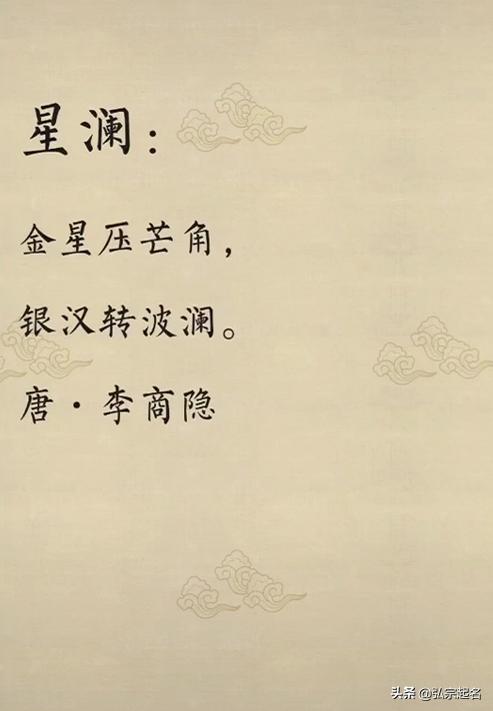 星澜：
金星压芒角，
银汉转波澜。
唐·李商隐
头条 @弘宗起名